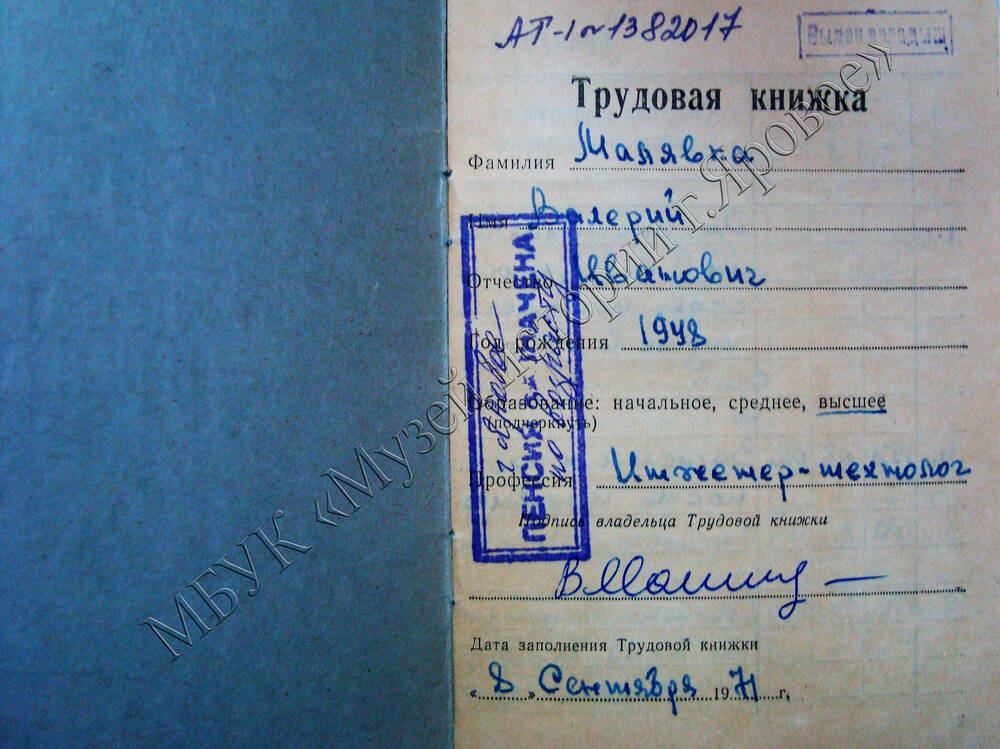 АТ-I № 1382017
Трудовая книжка
Фамилия Малявка
Имя Валерий
Отчество Иванович
Год рождения 1948
Образование: начальное, среднее, высшее
(подчеркнуть)
Профессия Инженер-технолог
Подпись владельца Трудовой книжки
Дата заполнения Трудовой книжки
«8» Сентября 1971 г.
ПЕНСИЯ НАЗНАЧЕНА
г. Яровое
по возрасту
МБУК «Музей истории г.Яровое»